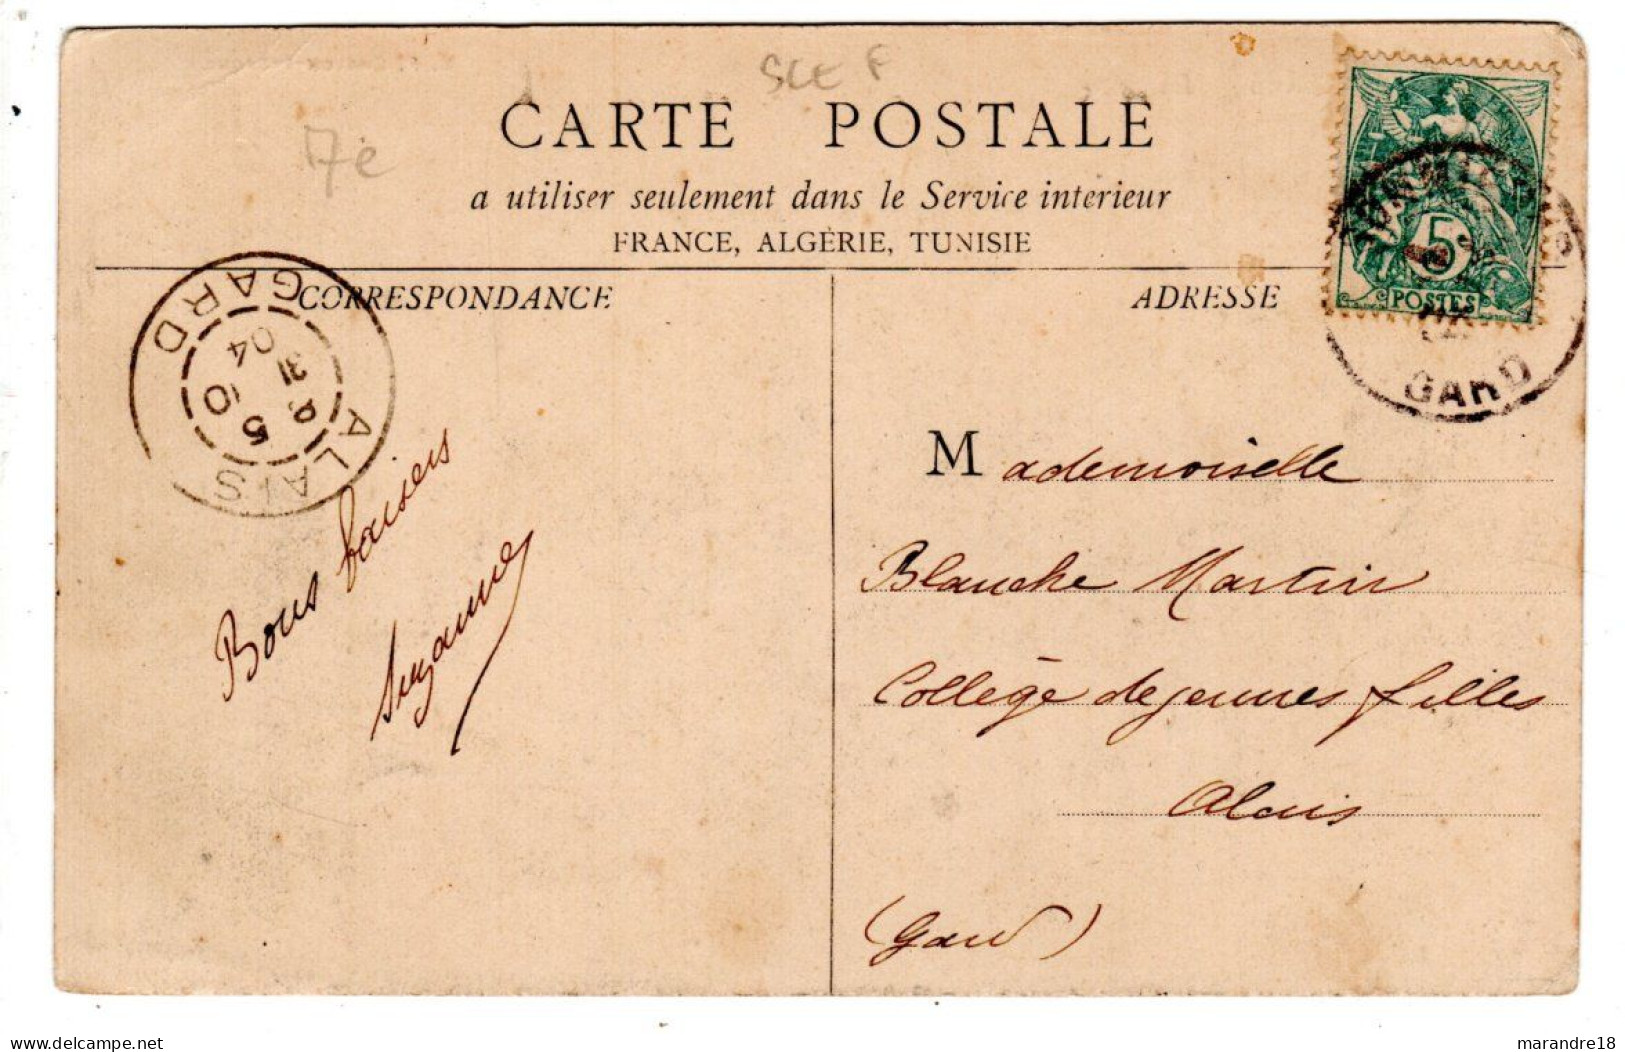 SCE F
7e
CARTE POSTALE
a utiliser seulement dans le Service intérieur
FRANCE, ALGÉRIE, TUNISIE
CORRESPONDANCE
ADRESSE
5
POSTES
GARD
ALAIS
GARD
5
31
10
04
Bons baisers
Suzanne
Mademoiselle
Blanche Martin
Collège de jeunes filles
Alais
(Gard)
delcampe.net
marandre18